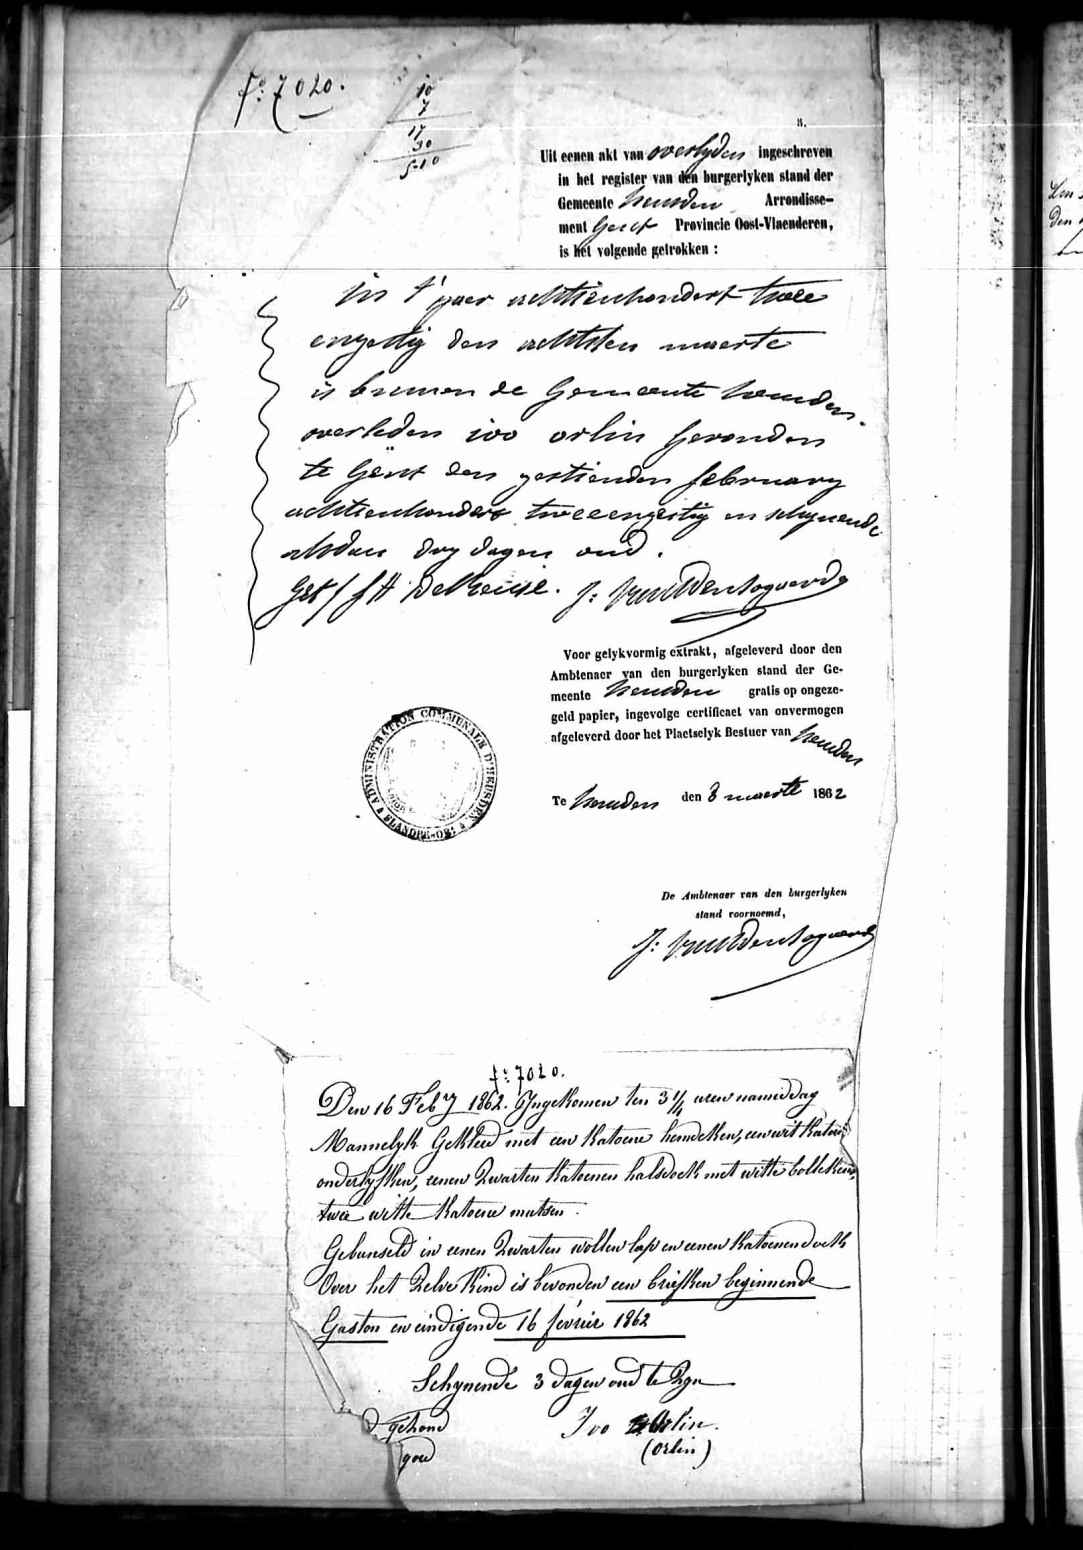 fo: 7020.
10
7
17
30
5-10
B.
Uit eenen akt van overlyden ingeschreven
in het register van den burgerlyken stand der
Gemeente heusden Arrondisse-
ment Gent Provincie Oost-Vlaenderen,
is het volgende getrokken :
in t' jaer achttienhondert twee
enzestig den achtsten maerte
is binnen de Gemeente heusden
overleden ivo orlin gevonden
te Gent den zestienden february
achttienhondert tweeenzestig en schynende
alsdan dry dagen oud.
Get/
Voor gelykvormig extrakt, afgeleverd door den
Ambtenaer van den burgerlyken stand der Ge-
meente heusden gratis op ongeze-
geld papier, ingevolge certificaet van onvermogen
afgeleverd door het Plaetselyk Bestuer van heusden
ADMINISTRATION COMMUNALE D'HEUSDEN
FLANDRE-OR:
Te heusden den 8 maerte 1862
De Ambtenaer van den burgerlyken
stand voornoemd,
fo: 7020.
Den 16 Feby 1862. Ingekomen ten 3 1/4 uren namiddag
Mannelyk Gekleed met een katoene hemdeken, een wit katoen
onderlyfken, eenen zwarten katoenen halsdoek met witte bollekens,
twee witte katoene mutsen.
Gebunseld in eenen zwarten wollen lap en eenen katoenen doek
Over het zelve kind is bevonden een briefken beginnende
Gaston en eindigende 16 février 1862
Schynende 3 dagen oud te zyn
Ivo Orlin.
(Orlin)